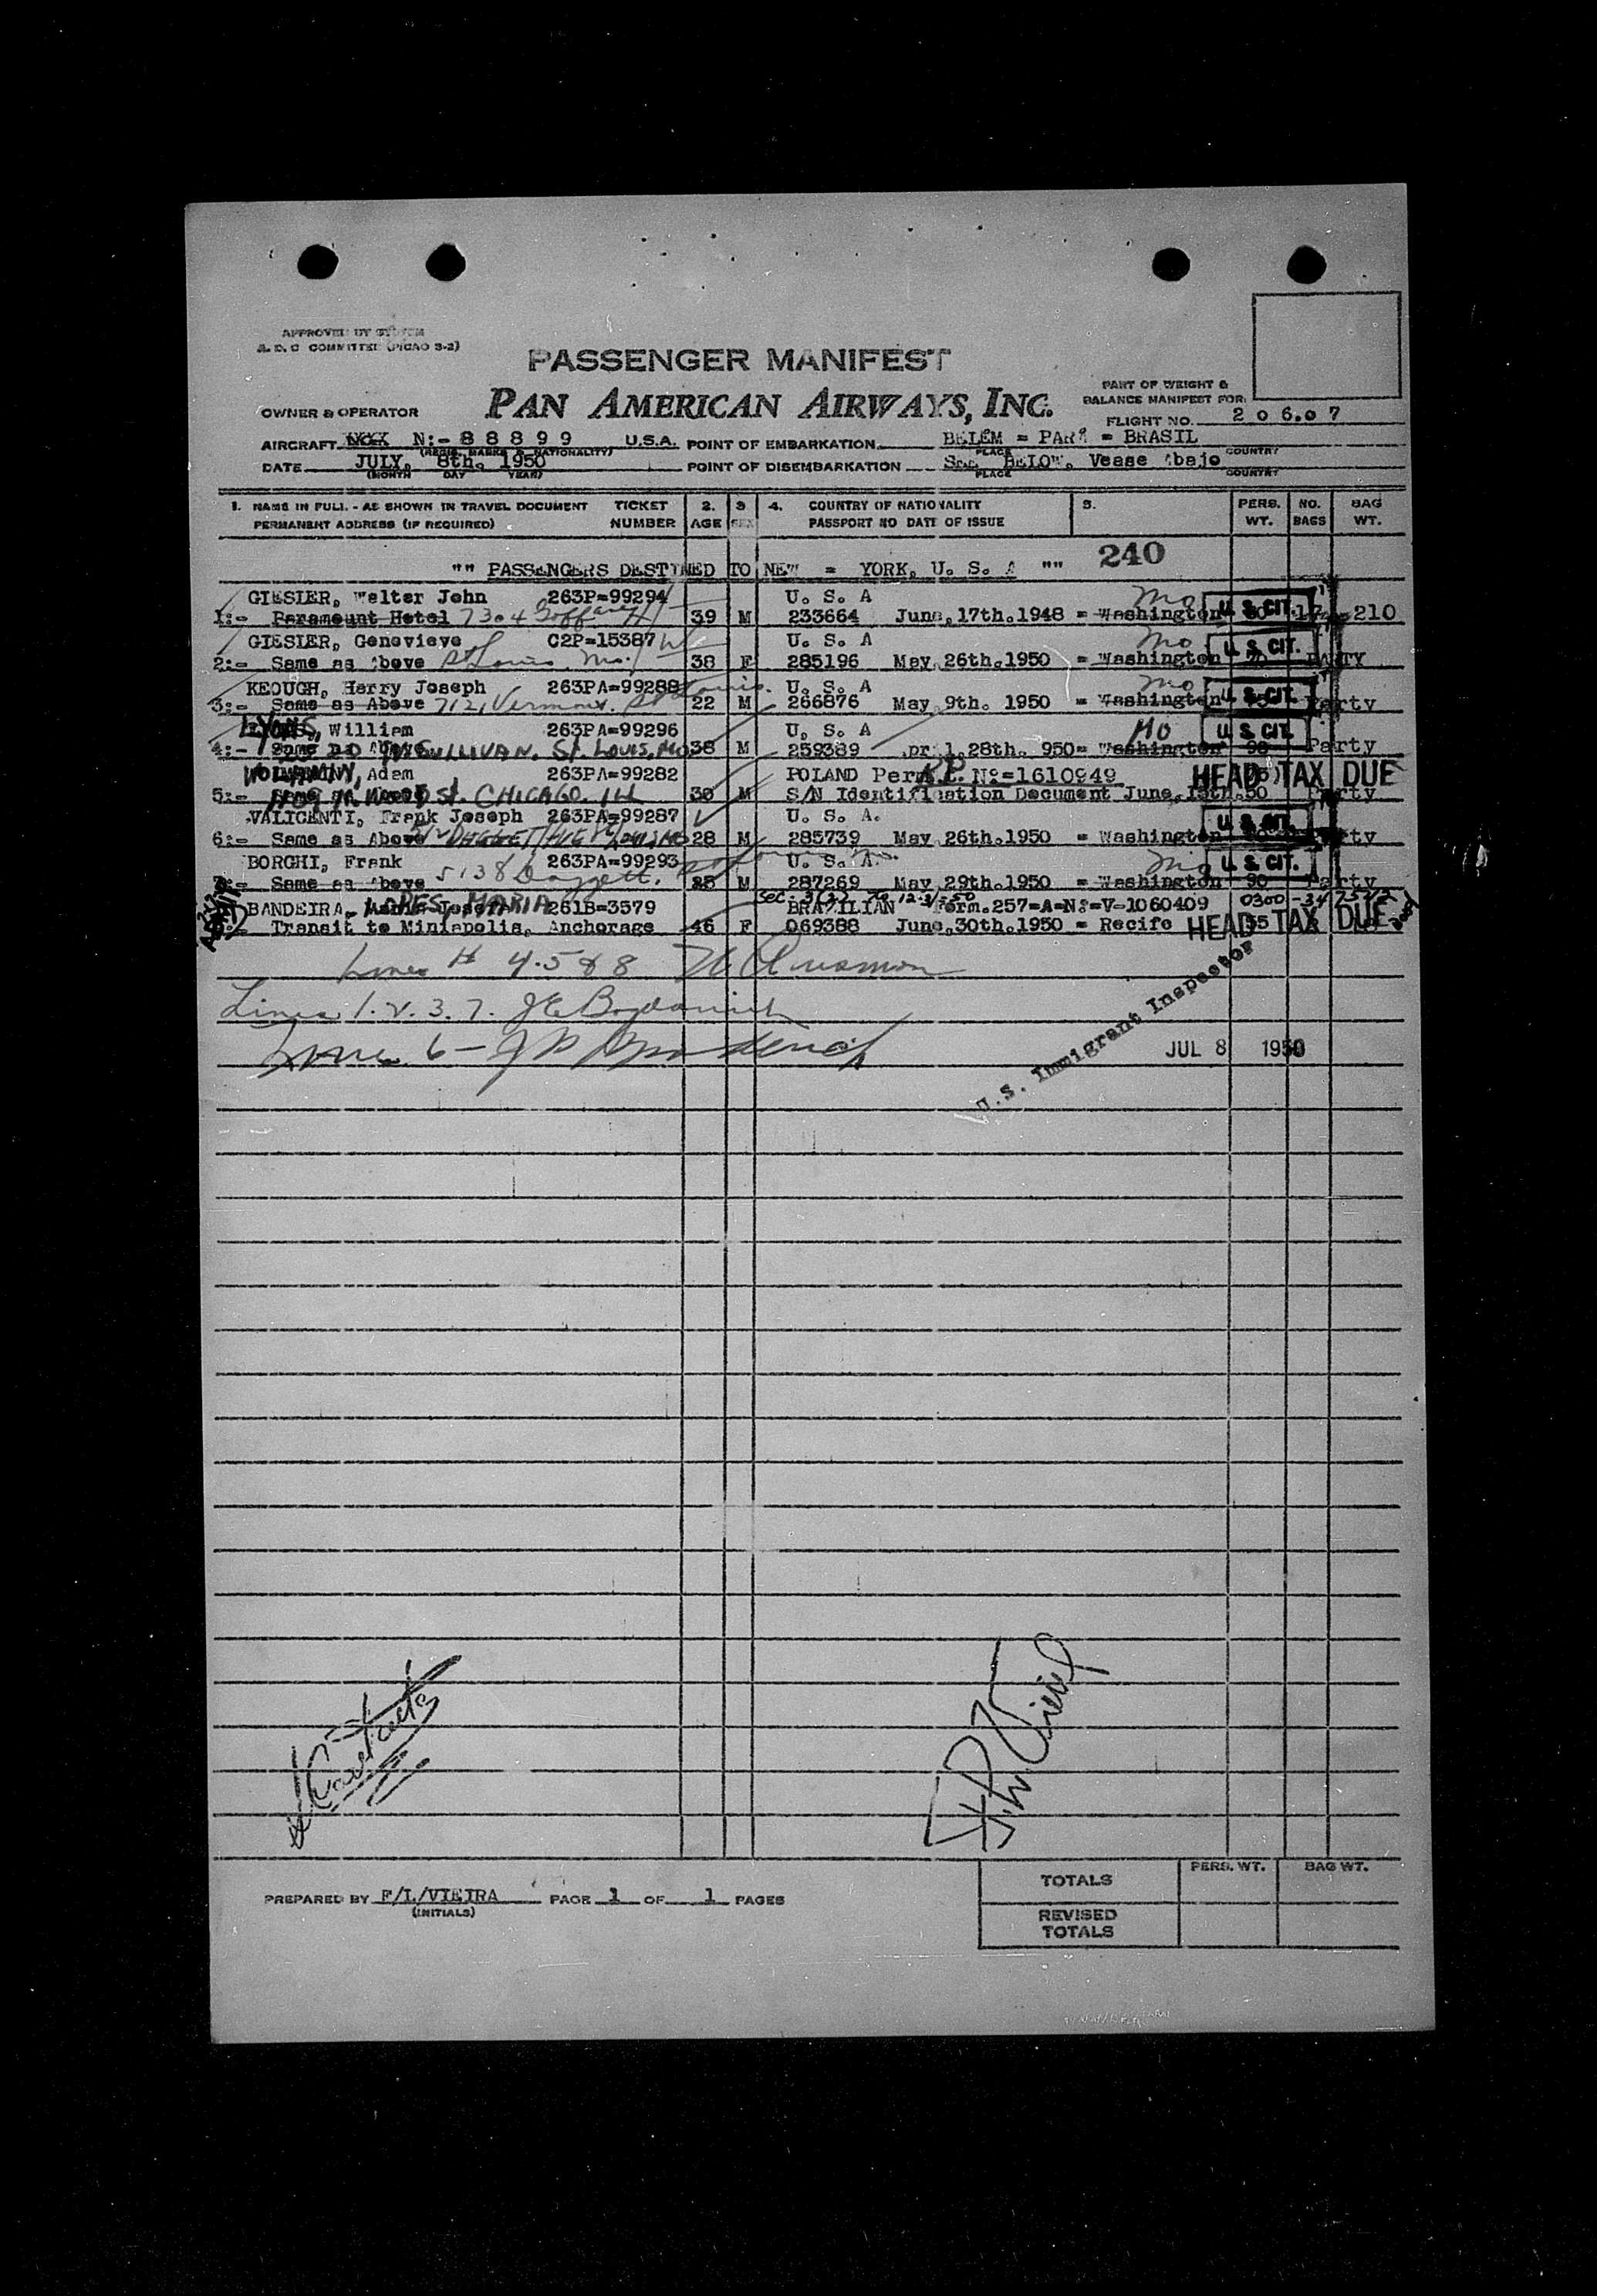 APPROVED BY
A. D. C COMMITTEE (PICAO S-2)
PASSENGER MANIFEST
PAN AMERICAN AIRWAYS, INC.
PART OF WEIGHT &
BALANCE MANIFEST FOR:
OWNER & OPERATOR
FLIGHT NO. 2 0 6.0 7
AIRCRAFT N:- 8 8 8 9 9 U.S.A. POINT OF EMBARKATION BELEM = PARA = BRASIL
(REGIS. MARKS & NATIONALITY) PLACE COUNTRY
DATE JULY, 8th. 1950 POINT OF DISEMBARKATION See BELOW, Vease Abajo
(MONTH DAY YEAR) PLACE COUNTRY
1. NAME IN FULL - AS SHOWN IN TRAVEL DOCUMENT TICKET 2. 3 4. COUNTRY OF NATIONALITY 5. PERS. NO. BAG
PERMANENT ADDRESS (IF REQUIRED) NUMBER AGE SEX PASSPORT NO DATE OF ISSUE WT. BAGS WT.
"" PASSENGERS DESTINED TO NEW = YORK, U. S. A "" 240
GIESLER, Walter John 263P=99294 U. S. A Mo U. S. CIT.
1:- Paramount Hotel 7304 39 M 233664 June,17th.1948 = Washington 210
GIESLER, Genevieve C2P=15387 U. S. A Mo U. S. CIT.
2:- Same as Above St Louis Mo. 38 F 285196 May,26th.1950 = Washington PARTY
KEOUGH, Harry Joseph 263PA=99288 U. S. A Mo U. S. CIT.
3:- Same as Above 7121 Vermont. St Louis. 22 M 266876 May,9th. 1950 = Washington Party
LYONS, William 263PA=99296 U. S. A MO U. S. CIT.
4:- Same as Above SULLIVAN. ST. LOUIS, MO 38 M 259389 28th. 950= Washington 90 Party
Adam 263PA=99282 POLAND R.P. Nº=1610949 HEAD TAX DUE
5:- Same as Above ST. CHICAGO. ILL 30 M S/N Identification Document June, 50 Party
VALICENTI, Frank Joseph 263PA=99287 U. S. A. U. S. CIT.
6:- Same as Above DAGGET AVE 28 M 285739 May,26th.1950 = Washington Party
BORGHI, Frank 263PA=99293 U. S. A. Mo U. S. CIT.
Same as Above 5138 Daggett. 25 M 287269 May,29th.1950 = Washington 90 Party
Sec. 3(2) To 12-31-50 0300
BANDEIRA LOPES, MARIA 261B=3579 BRAZILIAN Form.257=A=Nº=V=1060409
Transit to Miniapolis, Anchorage 46 F 069388 June,30th.1950 = Recife 55 HEAD TAX DUE
Lines # 4.5 & 8
Lines 1. 2. 3. 7.
Line 6 -
U.S. Immigrant Inspector
JUL 8 1950
PREPARED BY F/L/VIEIRA PAGE 1 OF 1 PAGES
(INITIALS)
PERS. WT. BAG WT.
TOTALS
REVISED
TOTALS